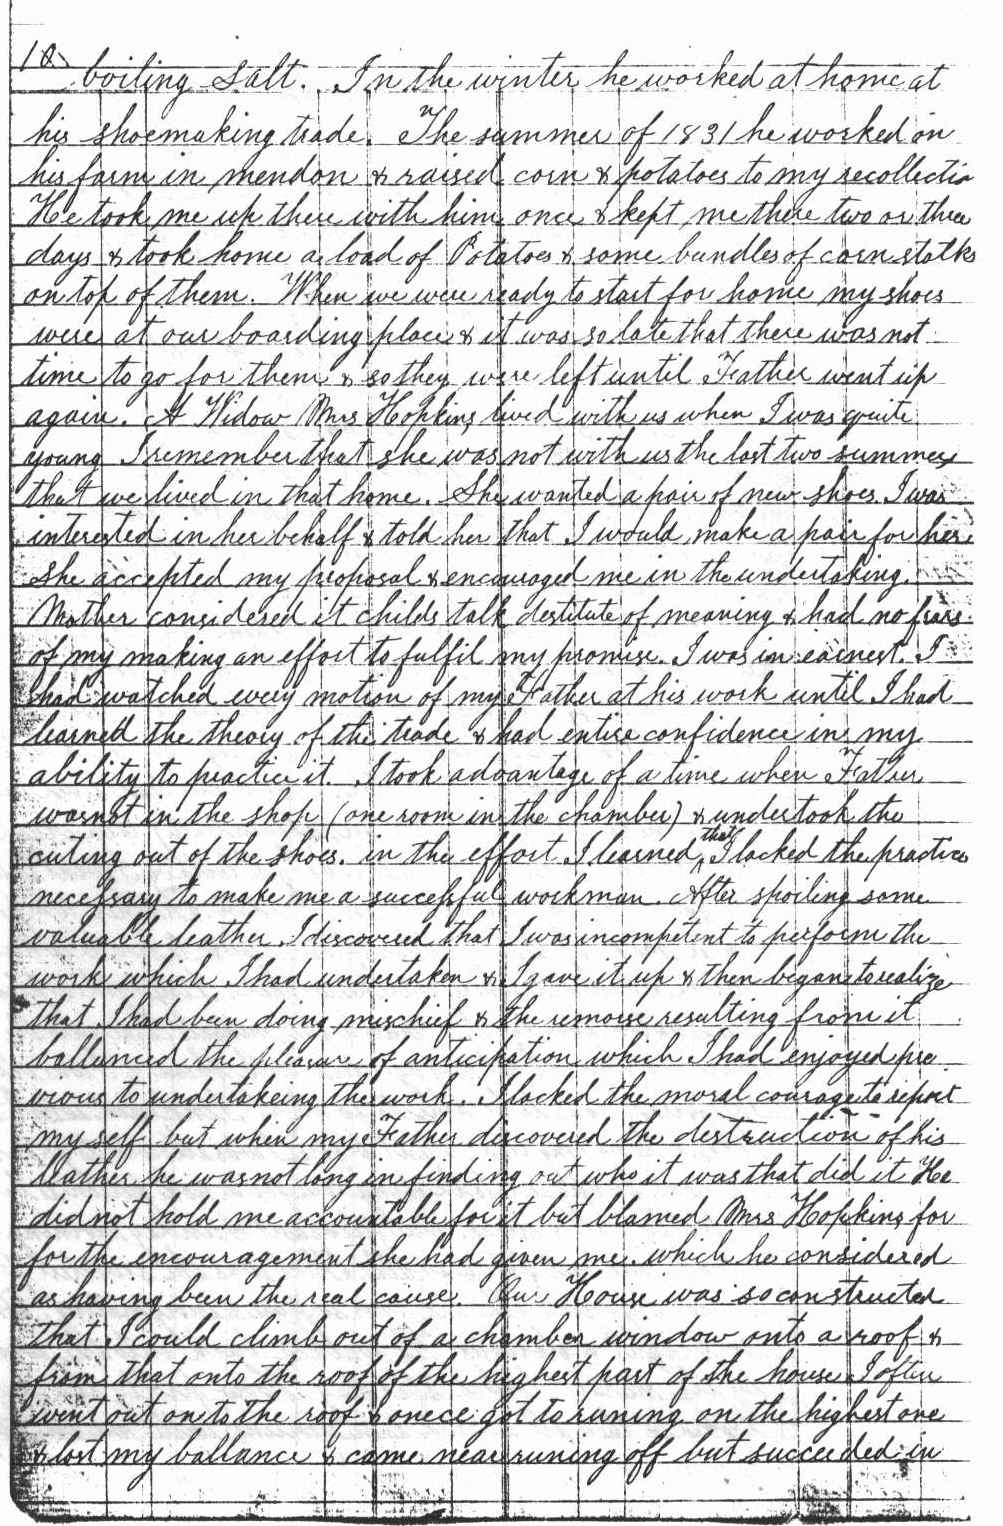 10
boiling Salt. In the winter he worked at home at
his shoemaking trade. The summer of 1831 he worked on
his farm in mendon & raised corn & potatoes to my recollectio
He took me up there with him once & kept me there two or three
days & took home a load of Potatoes & some bundles of corn stalks
on top of them. When we were ready to start for home my shoes
were at our boarding place & it was so late that there was not
time to go for them & so they were left until Father went up
again. A Widow Mrs Hopkins lived with us when I was quite
young I remember that she was not with us the last two summers
that we lived in that home. She wanted a pair of new shoes. I was
interested in her behalf & told her that I would make a pair for her.
She accepted my proposal & encouraged me in the undertaking.
Mother considered it childs talk destitute of meaning & had no fears
of my making an effort to fulfil my promise. I was in earnest. I
had watched every motion of my Father at his work until I had
learned the theory of the trade & had entire confidence in my
ability to practice it. I took advantage of a time when Father
was not in the shop (one room in the chamber) & undertook the
cuting out of the shoes. in the effort I learned that I lacked the practice
necessary to make me a successful workman. After spoiling some
valuable leather I discovered that I was incompetent to perform the
work which I had undertaken & I gave it up & then began to realize
that I had been doing mischief & the remorse resulting from it
ballanced the pleasure of anticipation which I had enjoyed pre
vious to undertakeing the work. I lacked the moral courage to report
my self but when my Father discovered the destruction of his
leather he was not long in finding out who it was that did it He
did not hold me accountable for it but blamed Mrs Hopkins for
for the encouragement she had given me. which he considered
as having been the real cause. Our House was so constructed
that I could climb out of a chamber window onto a roof &
from that onto the roof of the highest part of the house I often
went out on to the roof & onece got to runing on the highest one
& lost my ballance & came near runing off but succeeded in